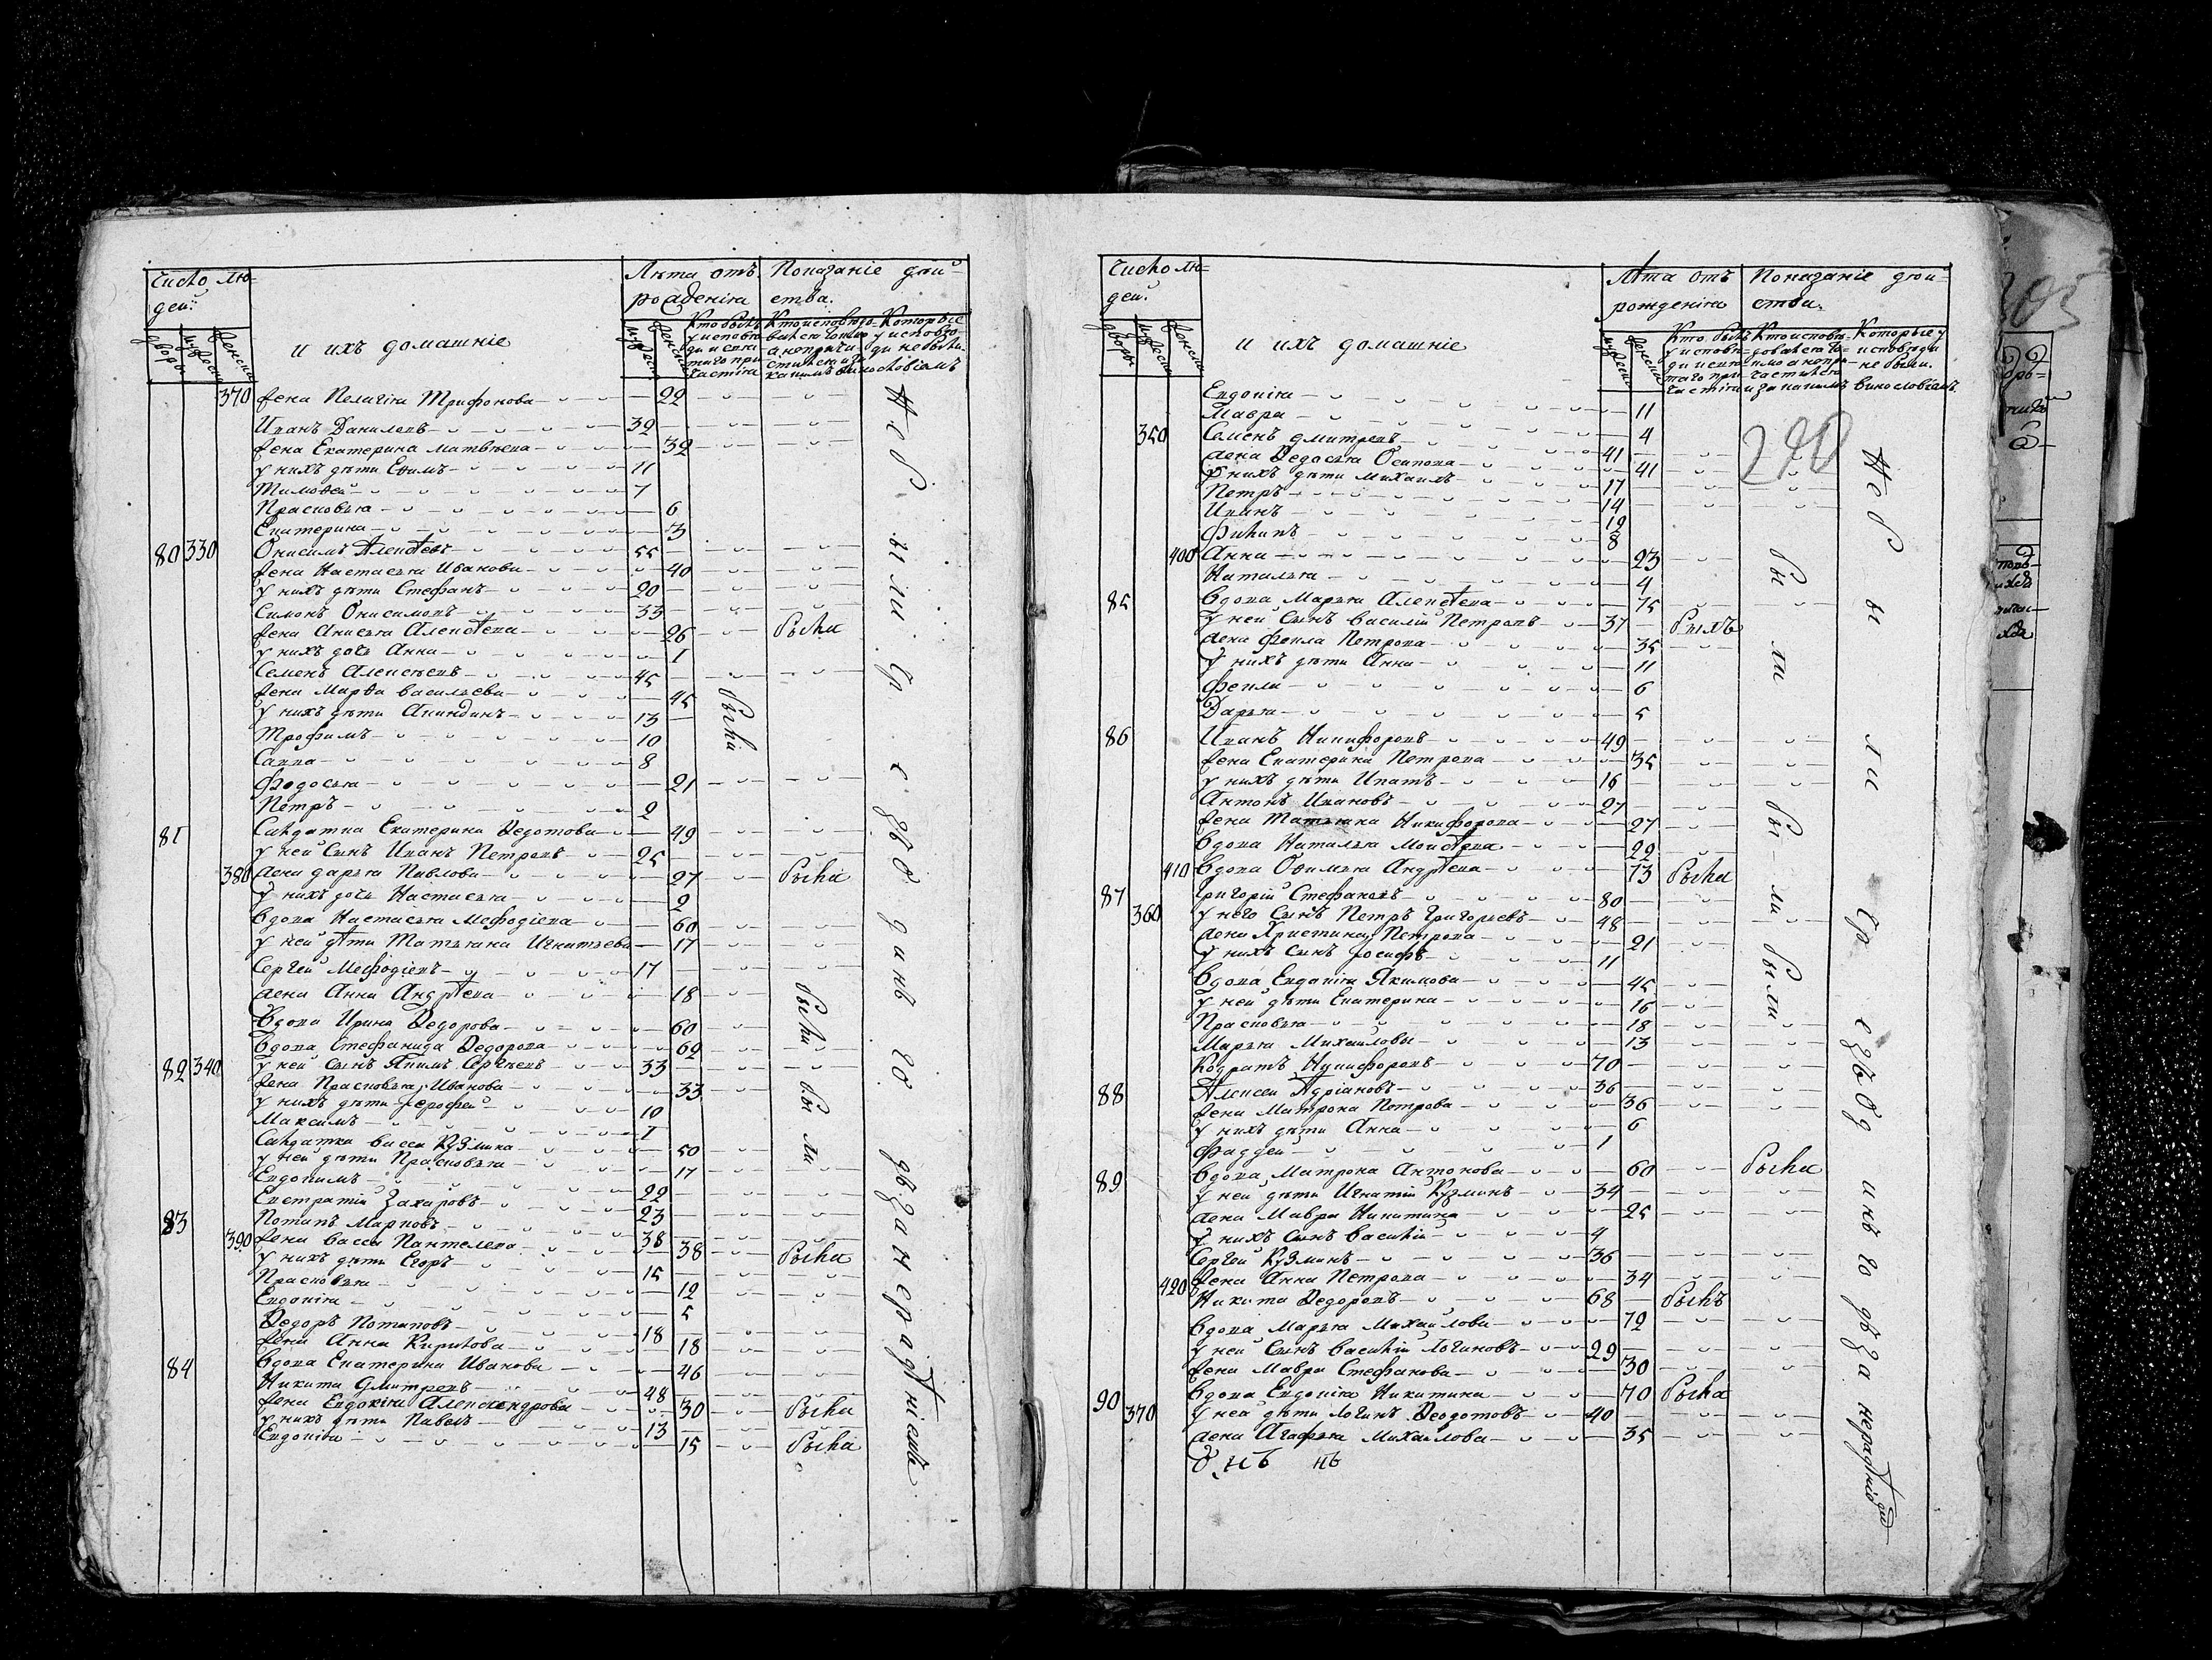 Число лю-
дей.
и ихъ домашніе
Лѣта отъ
рожденія
Показаніе дѣй-
ства.
дворы
муж
женски
370 жена Пелагія Трифонова 22
Иванъ Данилевъ 32
жена Екатерина Матвѣева 32
у нихъ дѣти Ефимъ 11
Тимоѳей 7
Прасковья 6
Екатерина 3
80 330 Онисимъ Алексѣевъ 55
жена Настасья Иванова 40
у нихъ дѣти Стефанъ 20
Симонъ Онисимовъ 33
жена Анисья Алексѣева 26 были
у нихъ дочь Анна 1
Семенъ Алексѣевъ 45
жена Марѳа Васильева 45
у нихъ дѣти Акиндинъ 13
Трофимъ 10
Савва 8
Ѳедосья 21
Петръ 2
81 Салдатка Екатерина Ѳедотова 49
у ней сынъ Иванъ Петровъ 25
380 жена Дарья Павлова 27 были
у нихъ дочь Настасья 2
вдова Настасья Мефодіева 60
у ней дѣти Татьяна Игнатьева 17
Сергей Мефодіевъ 17
жена Анна Андрѣева 18
вдова Ирина Ѳедорова 60
вдова Стефанида Ѳедорова 62
82 340 у ней сынъ Якимъ Сергѣевъ 33
жена Прасковья Иванова 33
у нихъ дѣти Ерофей 10
Максимъ 1
Салдатка Васса Кузмина 50
у ней дѣти Прасковья 17
Евдокимъ 22
Евстратій Захаровъ 23
83 Потапъ Марковъ 38
390 жена Васса Пантелева 38 были
у нихъ дѣти Егоръ 15
Прасковья 12
Евдокія 5
Ѳедоръ Потаповъ 18
жена Анна Кирилова 18
84 вдова Екатерина Иванова 46
Никита Дмитревъ 48
жена Евдокія Александрова 30 были
у нихъ дѣти Павелъ 13
Евдокіа 15 были
были
были бы ли
Не бы ли
Число лю-
дей.
и ихъ домашніе
Лѣта отъ
рожденія
Показаніе дѣй-
ства.
240
Евдокія 11
Мавра 4
350 Семенъ Дмитревъ 41
жена Ѳедосья Осипова 41
у нихъ дѣти Михаилъ 17
Петръ 14
Иванъ 12
Филипъ 8
400 Анна 23
Наталья 4
85 вдова Марья Алексѣева 75
у ней сынъ Василій Петровъ 37 былъ
жена Ѳекла Петрова 35
у нихъ дѣти Анна 11
Ѳекла 6
Дарья 5
86 Иванъ Никифоровъ 49
жена Екатерина Петрова 35
у нихъ дѣти Ипатъ 16
Антонъ Ивановъ 27
жена Татьяна Никифорова 27
вдова Наталья Моисѣева 22
410 вдова Офимья Андрѣева 73 была
87 Григорій Стефановъ 80
360 у него сынъ Петръ Григорьевъ 48
жена Христина Петрова 21
у нихъ сынъ Іосифъ 11
вдова Евдокія Якимова 45
у ней дѣти Екатерина 16
Прасковья 18
Марья Михаилова 13
Кодратъ Никифоровъ 70
88 Алексей Адріановъ 36
жена Матрона Петрова 36
у нихъ дѣти Анна 6
Фаддей 1
89 вдова Матрона Антонова 60 была
у ней дѣти Игнатій Кузминъ 34
жена Мавра Никитина 25
у нихъ сынъ Василій 4
Сергей Кузминъ 36
420 жена Анна Петрова 34
Никита Ѳедоровъ 68 былъ
вдова Марья Михайлова 72
у ней сынъ Василій Логиновъ 29
жена Мавра Стефанова 30
90 вдова Евдокія Никитина 70 была
370 у ней дѣти Логинъ Ѳеодотовъ 40
жена Агафья Михаилова 35
бы ли
бы ли были
Не бы ли